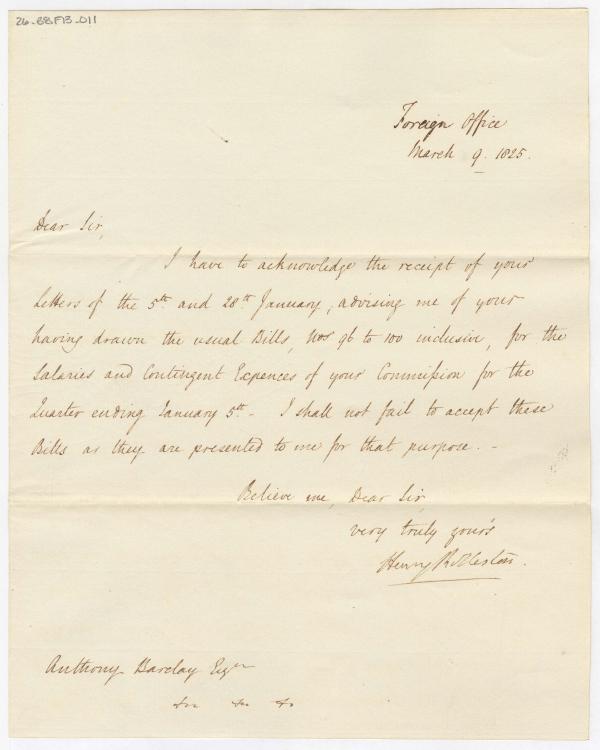 26-BBFB-011
Foreign Office
March 9. 1825.
Dear Sir,
I have to acknowledge the receipt of your
Letters of the 5th and 28th January, advising me of your
having drawn the usual Bills, Nos 96 to 100 inclusive, for the
Salaries and Contingent Expences of your Commission for the
Quarter ending January 5th - I shall not fail to accept these
Bills as they are presented to me for that purpose. -
Believe me, Dear Sir,
very truly your's
Henry
Anthony Barclay Esqre
&c &c &c